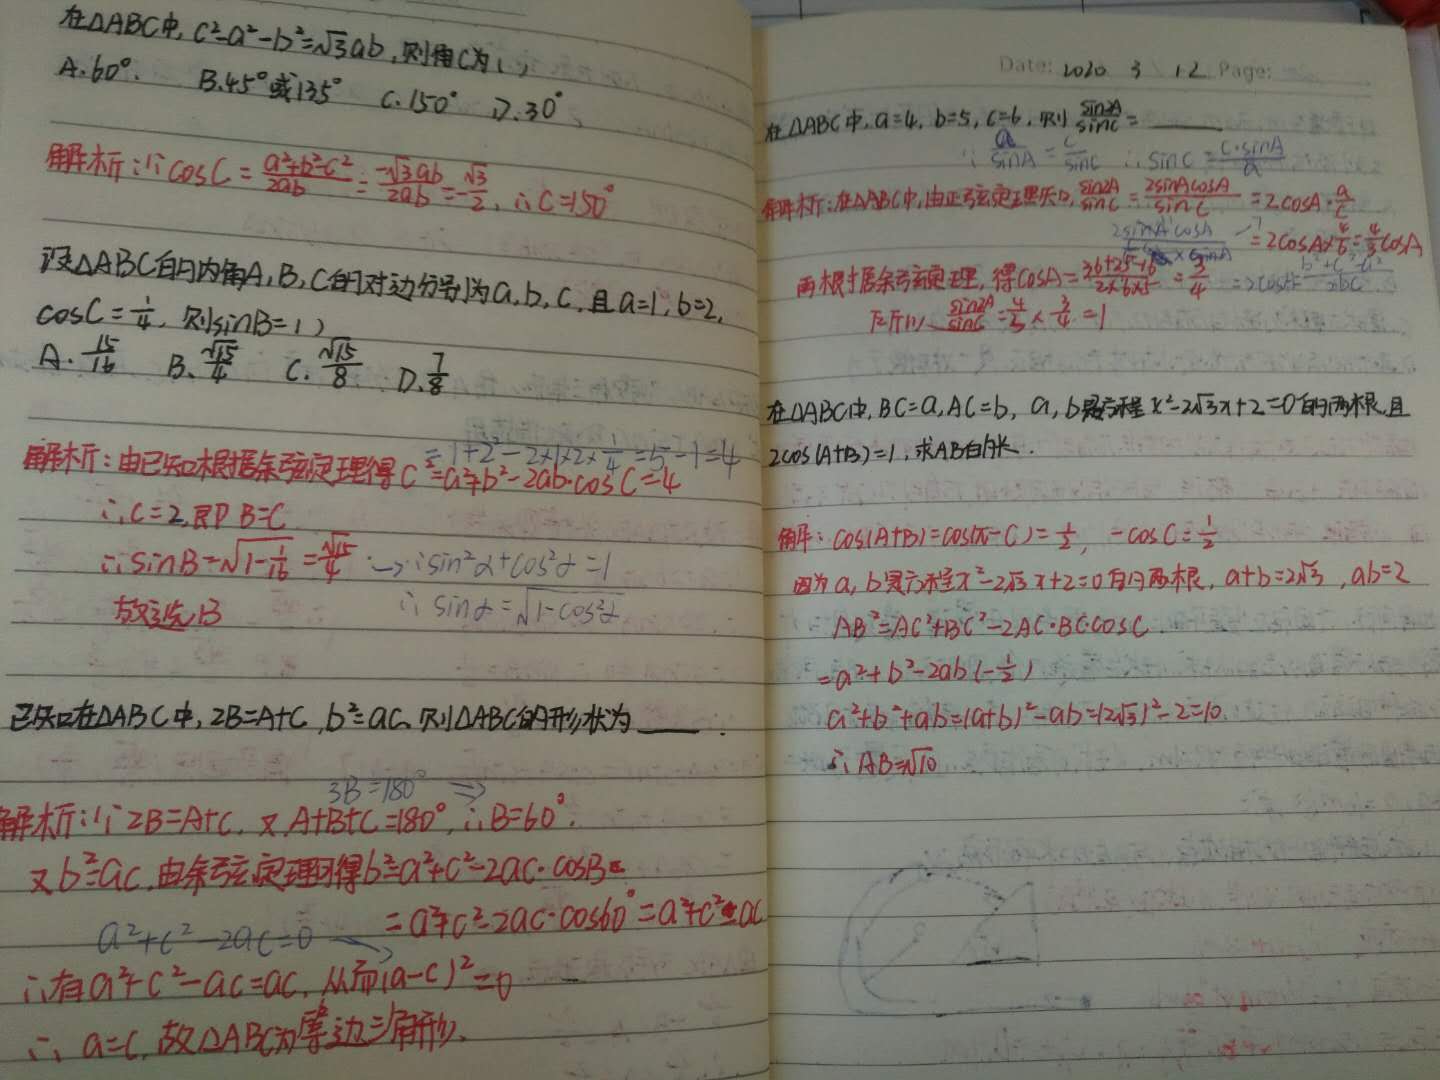 在△ABC中, c²-a²-b²=√3ab, 则角C为( )
A.60°. B.45°或135° C.150° D.30°
解析:∵cosC=(a²+b²-c²)/2ab=-√3ab/2ab=-√3/2, ∴C=150°
设△ABC的内角A,B,C的对边分别为a,b,c,且a=1,b=2,
cosC=1/4, 则sinB=( )
A. 15/16 B. √15/4 C. √15/8 D. 7/8
=1+2²-2×1×2×1/4=5-1=4
解析:由已知根据余弦定理得c²=a²+b²-2ab·cosC=4
∴c=2,即B=C
∴sinB=√(1-1/16)=√15/4 ∵sin²α+cos²α=1
故选B ∴sinα=√(1-cos²α)
已知在△ABC中, 2B=A+C, b²=ac, 则△ABC的形状为____.
3B=180° ⇒
解析:∵2B=A+C, 又A+B+C=180°,∴B=60°.
又b²=ac,由余弦定理可得b²=a²+c²-2ac·cosB
=a²+c²-2ac·cos60°=a²+c²-ac
a²+c²-2ac=0
∴有a²+c²-ac=ac, 从而(a-c)²=0
∴a=c,故△ABC为等边三角形.
Date: 2020 3 12 Page:
在△ABC中,a=4, b=5, c=6, 则 sin2A/sinC=____
∵a/sinA=c/sinC ∴sinC=c·sinA/a
解析:在△ABC中,由正弦定理知,sin2A/sinC=2sinAcosA/sinC=2cosA·a/c
2sinA·cosA =2cosA×4/6=4/3cosA
再根据余弦定理, 得cosA=(36+25-16)/(2×6×5)=3/4
所以 sin2A/sinC=4/3×3/4=1
在△ABC中, BC=a, AC=b, a,b是方程x²-2√3x+2=0的两根,且
2cos(A+B)=1,求AB的长.
解:cos(A+B)=cos(π-C)=1/2, -cosC=1/2
因为a,b是方程x²-2√3x+2=0的两根, a+b=2√3, ab=2
AB²=AC²+BC²-2AC·BC·cosC
=a²+b²-2ab(-1/2)
a²+b²+ab=(a+b)²-ab=(2√3)²-2=10
∴AB=√10